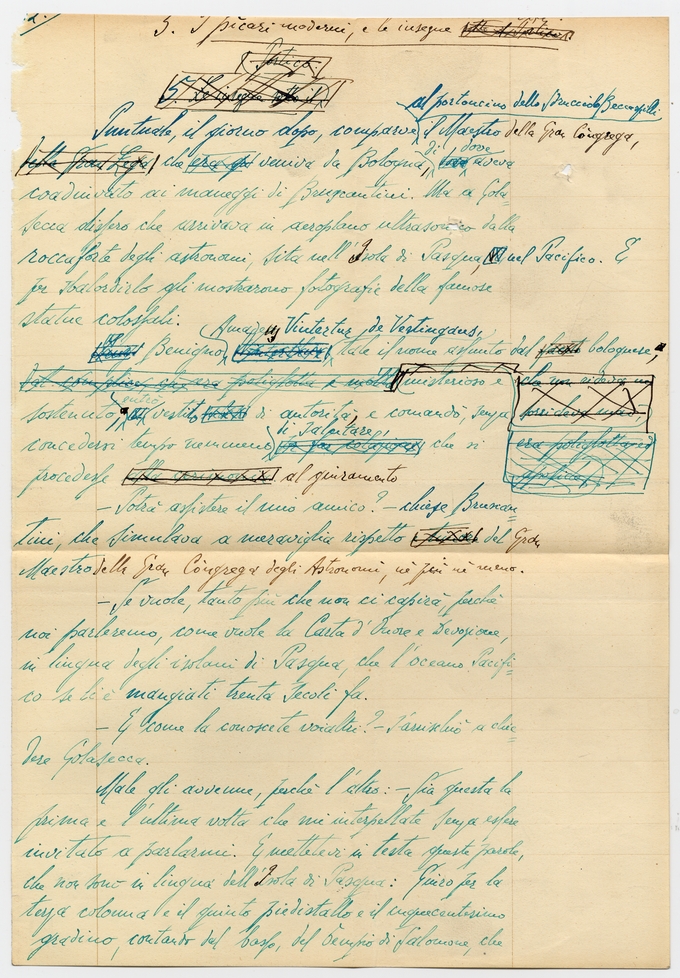 2.
5. I pìcari moderni, e le insegne
5. Le insegne
al portoncino dello Brucciolo
Puntuale, il giorno dopo, comparve il Maestro della Gran Còngrega,
della Gran Lega che veniva da Bologna, dove aveva
coadiuvato ai maneggi di Bruscantini. Ma a Gola-
secca dissero che arrivava in aeroplano ultrasonico dalla
roccaforte degli astronomi, sita nell'Isola di Pasqua, nel Pacifico. E
per sbalordirlo gli mostrarono fotografie della famose
statue colossali.
Vintertur de Vestingaus,
Benigno tale il nome assunto dal bolognese,
misterioso e che non rideva nè
sorrideva mai,
sostenuto, entrò vestito di autorità, e comandò, senza
era poliglotta
concedersi tempo nemmeno di salutare, che si
procedesse al giuramento
— Potrà assistere il mio amico? — chiese Bruscan-
tini, che simulava a meraviglia rispetto del Gran
Maestro della Gran Còngrega degli Astronomi, nè più nè meno.
— Se vuole, tanto più che non ci capirà, perchè
noi parleremo, come vuole la Carta d'Onore e Devozione,
in lingua degli isolani di Pasqua, che l'oceano Pacifi-
co se li è mangiati trenta secoli fa.
— E come la conoscete voialtri? — s'arrischiò a chie-
dere Golasecca.
Male gli avvenne, perchè l'altro: — Sia questa la
prima e l'ultima volta che mi interpellate senza essere
invitato a parlarmi. E mettetevi in testa queste parole,
che non sono in lingua dell'Isola di Pasqua: Giuro per la
terza colonna e il quinto piedistallo e il cinquecentesimo
gradino, contando dal basso, del Tempio di Salomone, che